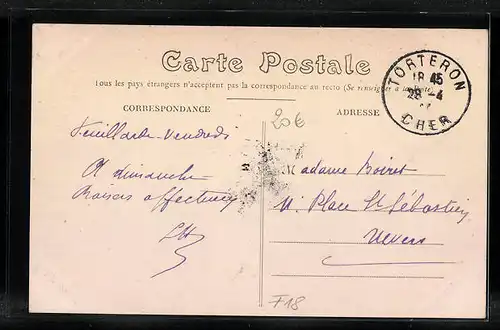 Carte Postale
Tous les pays étrangers n'acceptent pas la correspondance au recto (Se renseigner à la Poste)
CORRESPONDANCE
ADRESSE
TORTERON
18 45
28 -4
CHER
20€
Feuillarde - Vendredi
A dimanche
Baisers affectueux
Madame Boiret
11. Place St Sébastien
Nevers
F18